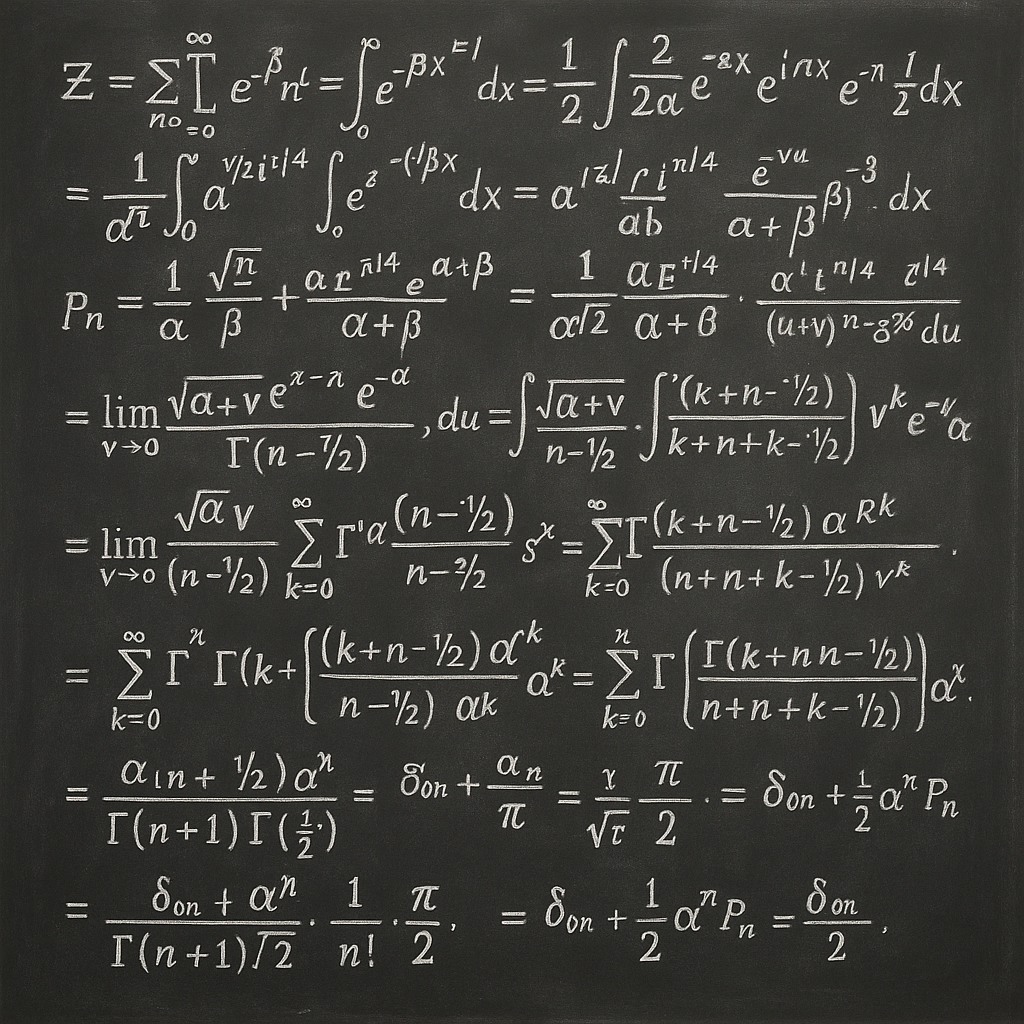 Z = ∑∏ₙₒ₌₀^∞ e^-βnᶥ = ∫₀^∞ e^-βx dx = 1/2 ∫ 2/2α e^-8x e^inx e^-n 1/2 dx
= 1/α√n ∫₀ α^1/2 i^t/4 ∫₀ e² dx = α / αb e^-vu / α+β β)^-3 . dx
Pₙ = 1/α √n/β + α r^n/4 e^α+β / α+β = 1/α√2 αE^t/4 / α+β · α^ι t^n/4 / (u+v)^n-8 du
= lim v→0 √α+v e^x-n e^-α / Γ(n-7/2) , du = ∫ √α+v / n-1/2 · ∫ '(k+n-·1/2) / k+n+k-·1/2) ) v^k e^-v α
= lim v→0 √α v / (n-1/2) ∑ₖ₌₀^∞ Γ'α (n-·1/2) / n-2/2 s^x = ∑ₖ₌₀^∞ Γ (k+n-1/2) α^Rk / (n+n+k-1/2) v^k .
= ∑ₖ₌₀^∞ Γ^n Γ(k+ ( (k+n-1/2) α^k / n-1/2) αk α^k = ∑ₖ₌₀^n Γ ( Γ(k+nn-1/2)) / n+n+k-1/2) ) α^x.
= α(n+ 1/2) α^n / Γ(n+1) Γ(1/2) = δₒₙ + αₙ/π = 1/√τ π/2 · = δₒₙ + 1/2 αⁿ Pₙ
= δₒₙ + αⁿ / Γ(n+1)√2 · 1/n! · π/2 , = δₒₙ + 1/2 αⁿ Pₙ = δₒₙ/2 ,